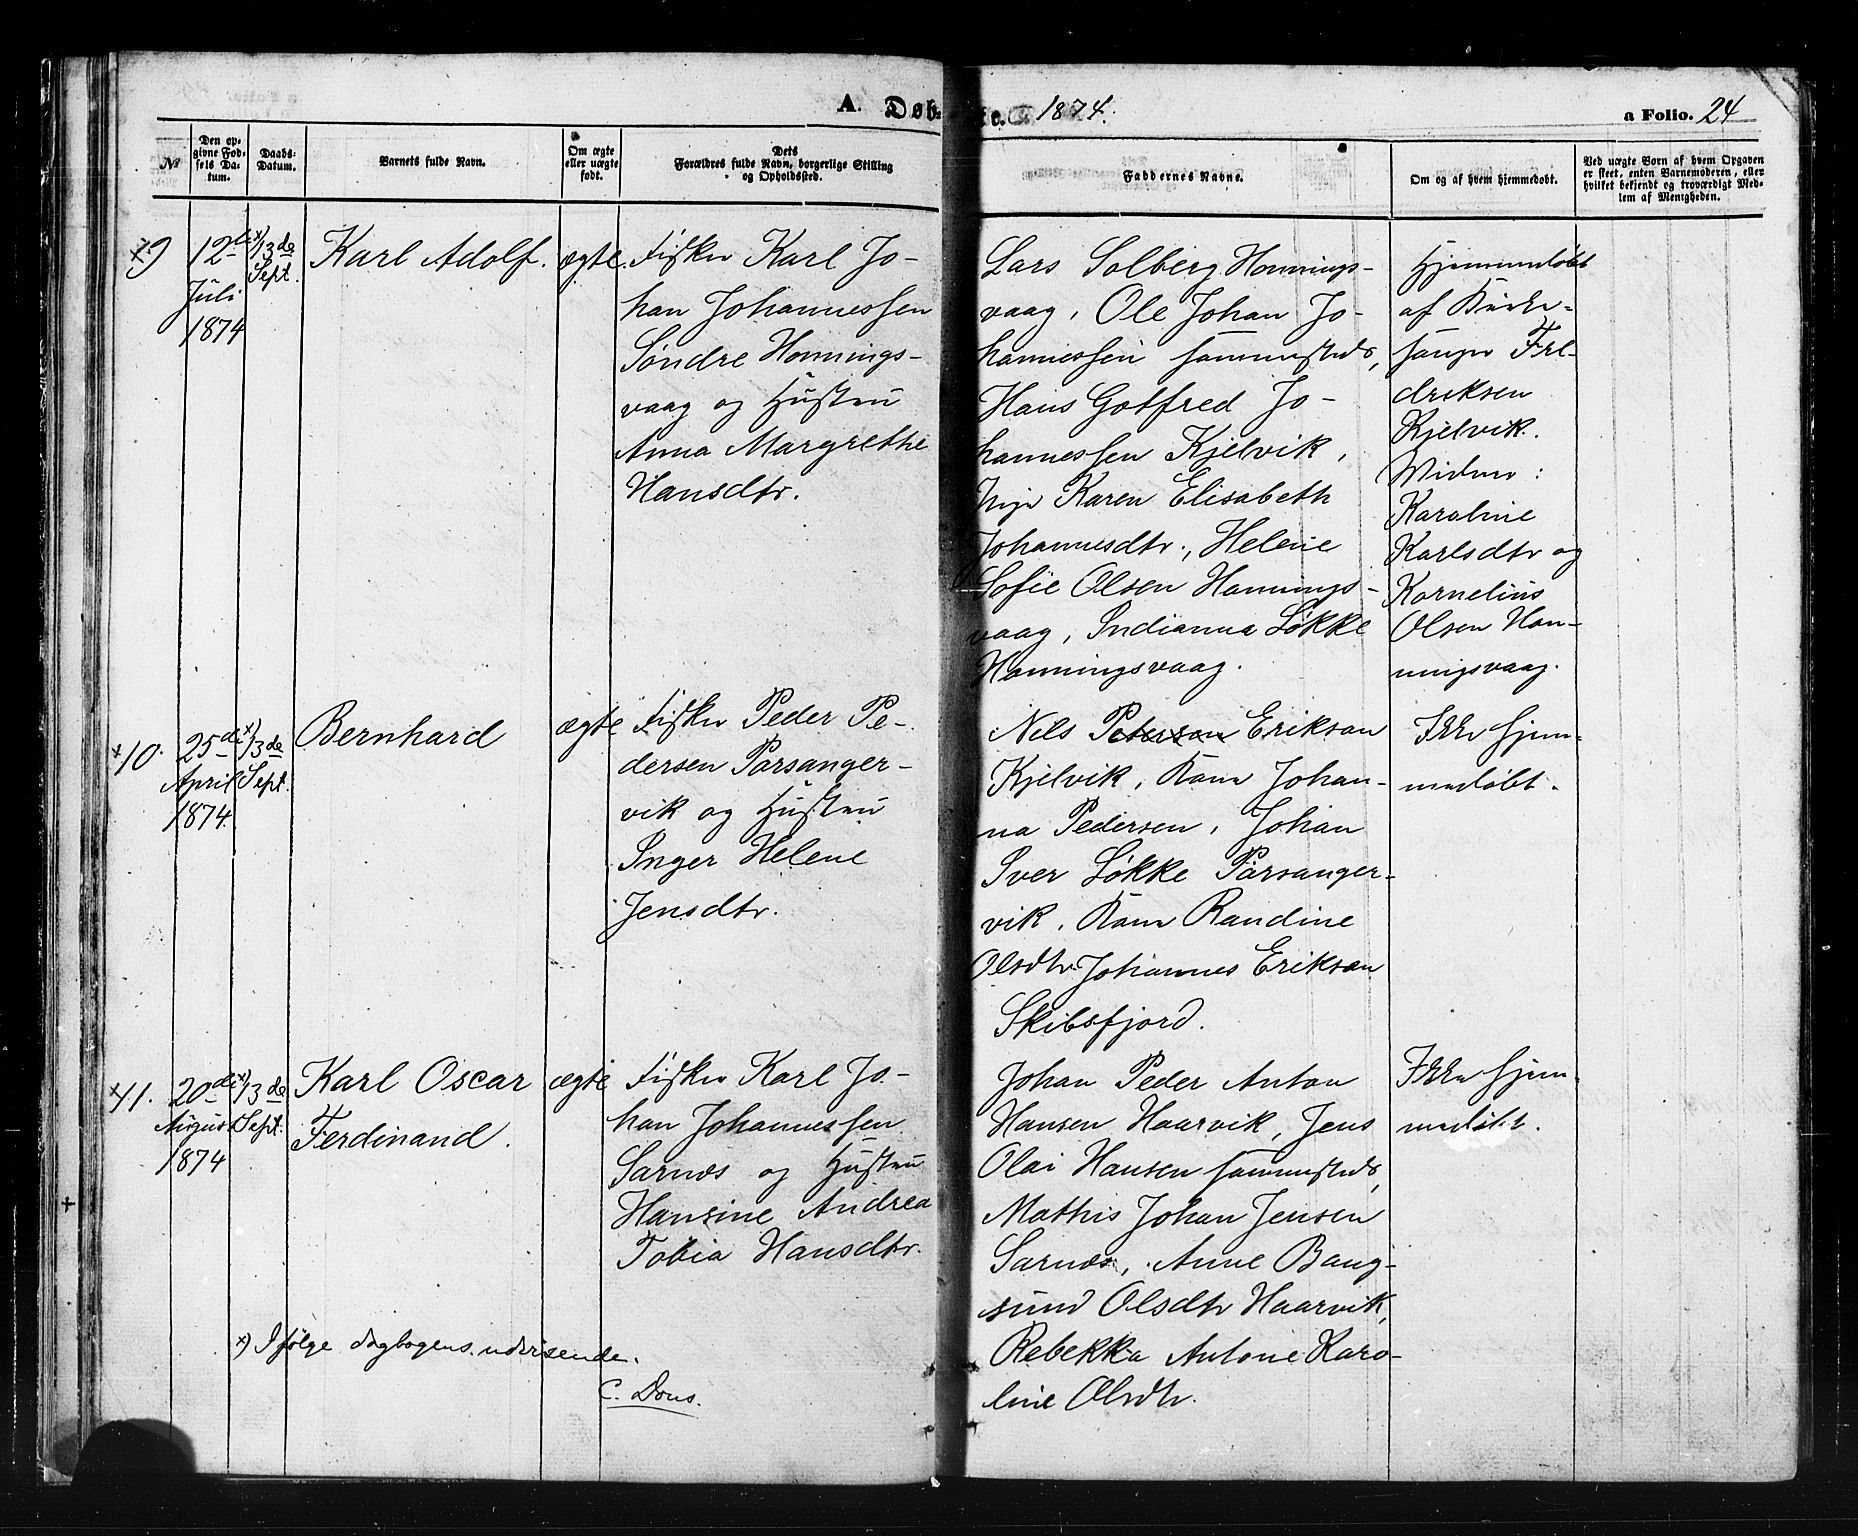 A. Døb-te. 1874. a Folio. 24
№
Den op-
givne Fød-
sels Da-
tum.
Daabs-
Datum.
Barnets fulde Navn.
Om ægte
eller uægte
født.
Dets
Forældres fulde Navn, borgerlige Stilling
og Opholdssted.
Faddernes Navne.
Om og af hvem hjemmedøbt.
Ved uægte Børn af hvem Opgaven
er skeet, enten Barnemoderen, eller
hvilket bekjendt og troværdigt Med-
lem af Menigheden.
9
12te
Juli
1874
x) 13de
Sept.
Karl Adolf.
ægte.
Fisker Karl Jo-
han Johannessen
Søndre Honnings-
vaag og Hustru
Anna Margrethe
Hansdtr.
Lars Solberg Honnings-
vaag, Ole Johan Jo-
hannessen sammesteds,
Hans Gotfred Jo-
hannessen Kjelvik,
Pige Karen Elisabeth
Johannesdtr., Helene
Sofie Olsen Honnings-
vaag, Indianna Løkke
Honningsvaag.
Hjemmedøbt
af Kirke-
sanger Fre-
driksen
Kjelvik.
Vidner:
Karoline
Karlsdtr og
Kornelius
Olsen Hon-
ningsvaag.
x10.
25de
April
1874.
x) 13de
Sept.
Bernhard
ægte
Fisker Peder Pe-
dersen Porsanger-
vik og Hustru
Inger Helene
Jensdtr.
Nils Peterson Eriksen
Kjelvik, Kone Johan-
na Pedersen, Johan
Iver Løkke Porsanger-
vik, Kone Randine
Olsdtr. Johannes Eriksen
Skibsfjord.
Ikke hjem-
medøbt.
x11.
20de
August
1874
x) 13de
Sept.
Karl Oscar
Ferdinand.
ægte
Fisker Karl Jo-
han Johannessen
Sarnes og Hustru
Hansine Andrea
Tobia Hansdtr.
Johan Peder Anton
Hansen Haarvik, Jens
Olai Hansen sammesteds,
Mathis Johan Jensen
Sarnes, Anne Bang-
sund Olsdtr Haarvik,
Rebekka Antonie Karo-
line Olsdtr.
Ikke hjem-
medøbt.
x) Ifølge dagbogens udvisende.
C. Dons.